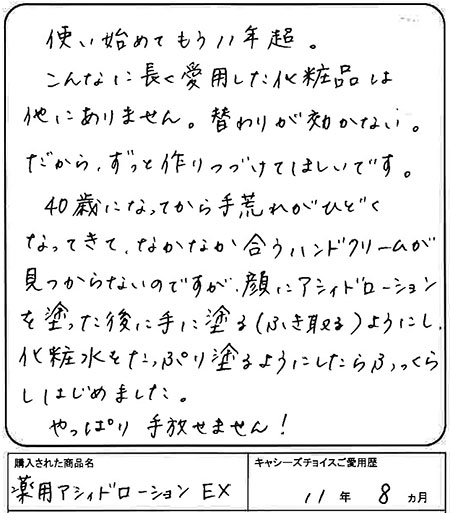 使い始めてもう11年超。
こんなに長く愛用した化粧品は
他にありません。替わりが効かない。
だから、ずっと作りつづけてほしいです。
40歳になってから手荒れがひどく
なってきて、なかなか合うハンドクリームが
見つからないのですが、顔にアシィドローション
を塗った後に手に塗る(ふき取る)ようにし、
化粧水をたっぷり塗るようにしたらふっくら
しはじめました。
やっぱり手放せません!
購入された商品名
キャシーズチョイスご愛用歴
薬用アシィドローション EX
11年 8ヵ月